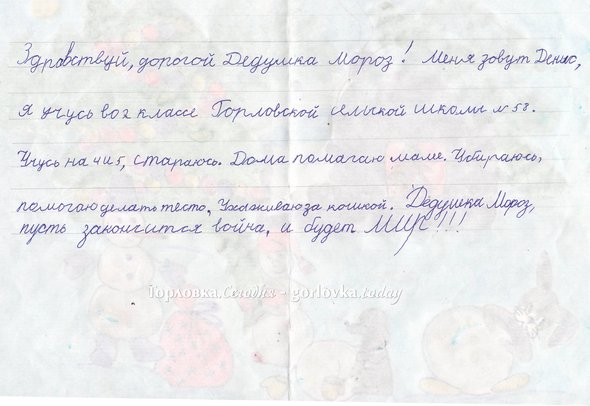 Здравствуй, дорогой Дедушка Мороз! Меня зовут Денис,
я учусь во 2 классе Горловской сельской школы № 58.
Учусь на 4 и 5, стараюсь. Дома помогаю маме. Убираюсь,
помогаю делать тесто, Ухаживаю за кошкой. Дедушка Мороз,
пусть закончится война, и будет МИР!!!
Горловка.Сегодня - gorlovka.today